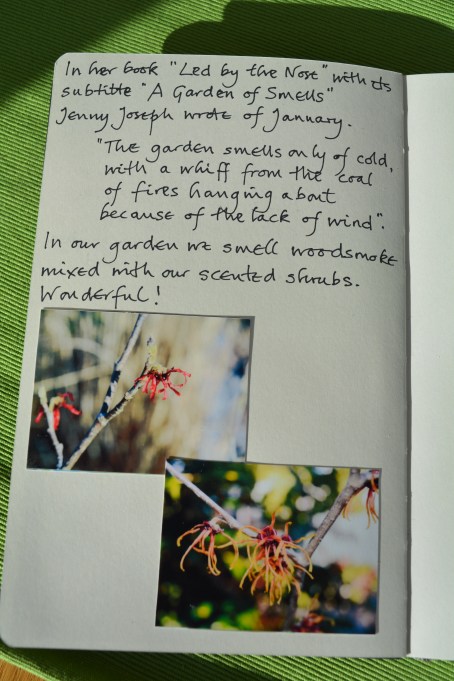 In her book "Led by the Nose" with its
subtitle "A Garden of Smells"
Jenny Joseph wrote of January.
"The garden smells only of cold,
with a whiff from the coal
of fires hanging about
because of the lack of wind".
In our garden we smell woodsmoke
mixed with our scented shrubs.
Wonderful!